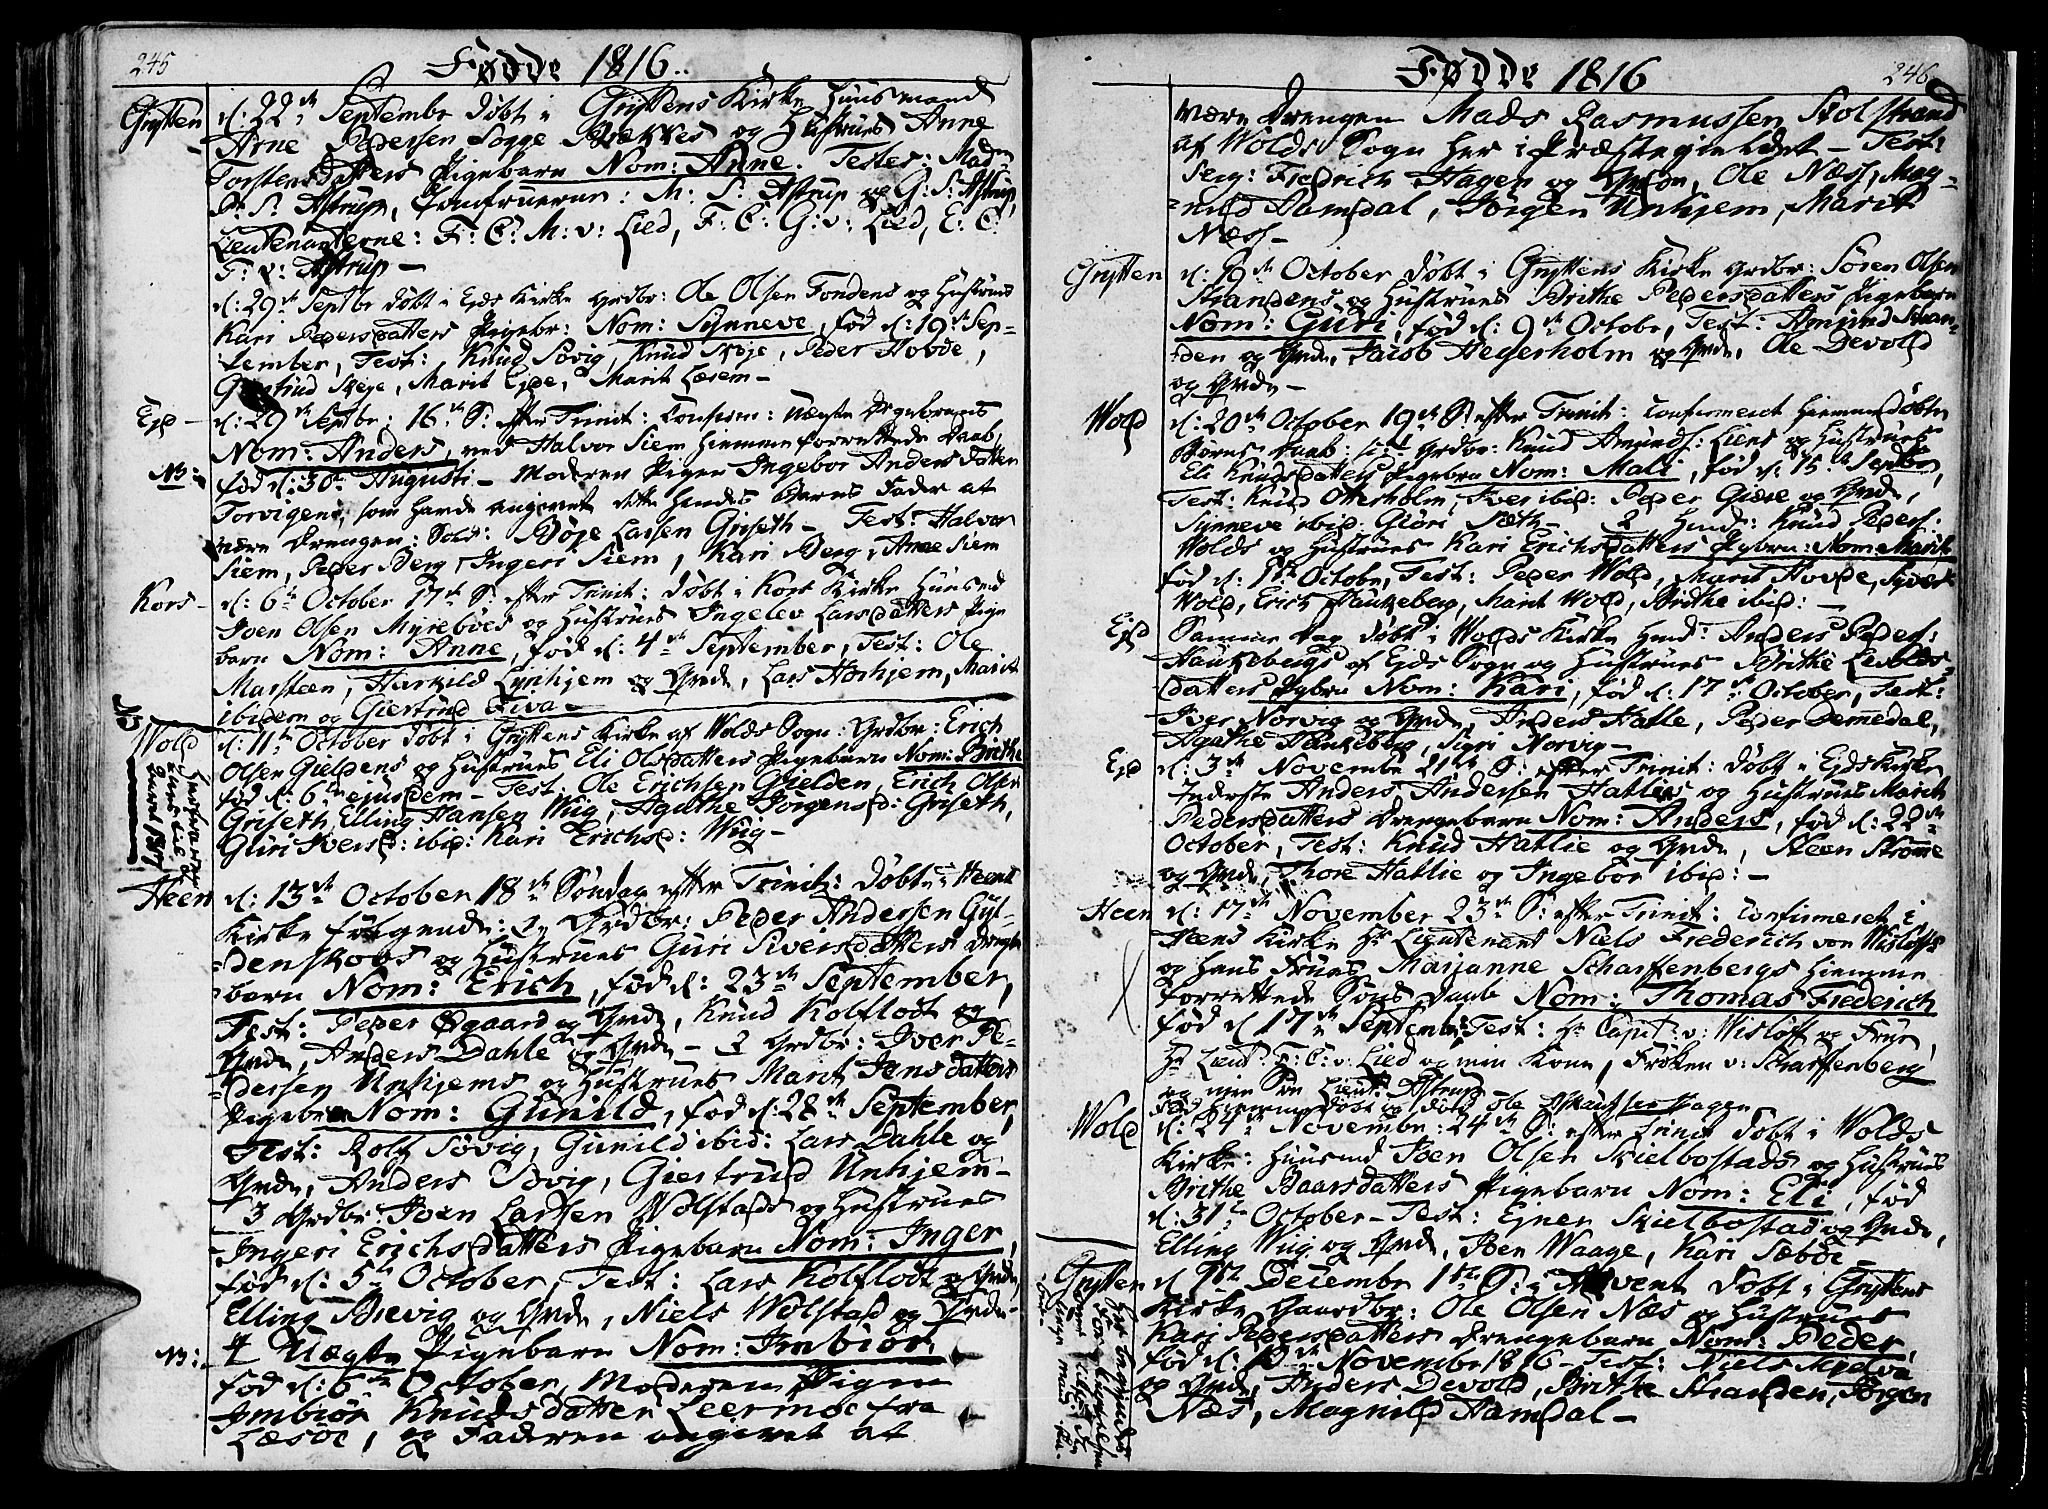 245
Fødde 1816.
Grytten
d: 22de Septembr døbt i Gryttens Kirke Huusmand
Arne Pedersen Sogge Brækkes og Hustrues Anne
Torstensdatters Pigebarn Nom: Anne. Testes: Madm
S: Astrup, Jomfruerne: M: S: Astrup og G: S: Astrup,
Lieutenanterne: F: C: M: v: Lied, F: C: G: v: Lied, E: C:
F: v: Astrup —
d: 29de Septbr døbt i Ejds Kirke Grdbr: Ole Olsen Fondens og Hustrues
Kari Pedersdatters Pigebr: Nom: Synneve, fød d: 19de Sep-
tember, Test: Knud Søvig, Knud Skeje, Peder Hovde,
Giertrud Skeje, Marit Ejde, Marit Læsem —
Ejd —
d: 29de Septbr: 16de S: efter Trinit: Confirm: Uægte Drgebrns
Nom: Anders, ved Halvor Siem hiemmeforrettede Daab,
NB:
fød d: 30te Augusti — Moderen Pigen Ingebor Anders datter
Torvigens, som havde angivet dette hendes Barns Fader at
være Drengen: Sold: Bøje Larsen Griseth — Test: Halvor
Siem, Peder Berg, Ingeri Siem, Kari Berg, Anne Siem
Kors —
d: 6te October 17de S: efter Trinit: døbt i Kors Kirke Huusmd
Iven Olsen Myrebøes og Hustrues Ingelev Larsdatters Pige
barn Nom: Anne, fød d: 4de September, Test: Ole
Marsteen, Harkild Lynhjem og Qvde, Lars Horhjem, Marit
ibidem og Giertrud Fiva —
NB
Wold
d: 11te October døbt i Gryttens Kirke af Wolds Sogn: Grdbr: Erich
Olsen Gieldens og Hustrues Eli Olsdatters Pigebarn Nom: Brithe
fød d: 6te ejusdem — Test: Ole Erichsen Gielden, Erich Olsen
Griseth, Elling Hansen Wiig, Agathe Jørgensd: Griseth,
Guri Iversd: ibid: Kari Erichsd: Wiig —
Heen
d: 13de October 18de Søndag efter Trinit: Døbte i Heens
Kirke følgende: 1, Grdbr: Peder Andersen Gyl-
denskovs og Hustrues Guri Siversdatters Drenge
barn Nom: Erich, fød d: 23de September,
Test: Peder Øgaard og Qvde, Knud Kolflodt og
Qvde, Anders Dahle og Qvde — 2 Grdbr: Iver Pe-
dersen Unhjems og Hustrues Marit Jensdatters
Pigebrn Nom: Gunild, fød d: 28de September,
Test: Rolf Søvig, Gunild ibid: Lars Dahle og
Qvde, Anders Søvig, Giertrud Unhjem —
3 Grdbr: Iven Larsen Wolstads og Hustrues
Ingeri Erichsdatters Pigebarn Nom: Inger,
fød d: 5te October, Test: Lars Kolflodt og Qvde,
Elling Brevig og Qvde, Niels Wolstad og Qvde —
NB:
4 Uægte Pigebarn Nom: Imbiør
fød d: 6te October, Moderen Pigen
Imbiør Knudsdatter Leermoe fra
Læsøe, og Faderen angivet at
Fødde 1816
246
være Drengen Mads Rasmussen Stolstrand
af Wolds Sogn her i Præstegieldet — Test:
Serg: Fredrich Hagen og Qvde, Ole Næss, Mag-
nild Hamsdal, Jørgen Unhjem, Marit
Næss —
Grytten
d: 19de October døbt i Gryttens Kirke Grdbr: Søren Olsen
Strandens og Hustrues Brithe Pedersdatters Pigebarn
Nom: Guri, fød d: 9de Octobr, Test: Amund Stran-
den og Qvde, Jacob Hegerholm og Qvde, Ole Devold
og Qvde —
Wold
d: 20de October 19de S: efter Trinit: Confirmeret hiemmedøbte
Børns daab: Grdbr: Knud Amunds: Liens og Hustrues
Eli Knudsdatters Pigebrn Nom: Mali, fød d: 15de Septbr,
Test: Knud Otterholm, Iver ibid: Peder Giære og Qvde,
Synneve ibid. Giøri Sæth — 2 Husd: Knud Peders:
Wolds og Hustrues Kari Erichsdatters Pigebrn: Nom: Marit
fød d: 1ste Octobr, Test: Peder Wold, Marit Hovde, Syver
Wold, Erich Haukeberg, Marit Wold, Brithe ibid: —
Ejd
Samme Dag døbt i Wolds Kirke Husd: Anders Peders:
Haukebergs af Ejds Sogn og Hustrues Brithe Levolds-
datters Pigebrn Nom: Kari, fød d: 17de October, Test:
Iver Norvig og Qvde, Anders Hatle, Peder Demmedal,
Agathe Haukeberg, Sigri Norvig —
Ejd
d: 3de Novembr 21de S: efter Trinit: Døbt i Ejds Kirke
Inderste Anders Andersen Hatlies og Hustrues Marit
Pedersdatters Drengebarn Nom: Anders, fød d: 22de
October, Test: Knud Hatlie og Qvde, Steen Strøme
og Qvde, Thore Hatlie og Ingebor ibid: —
Heen
d: 17de November 23de S: efter Trinit: Confirmeret i
Heens Kirke Hr Lieutenent Niels Frederich von Wisløffs
og hans Frues Marjanne Scharffenbergs hiemme
forrettede Søns Daab Nom: Thomas Frederich
fød d 17de Septembr Test: Hr Capit: v: Wisløff og Frue,
Hr Lieut F: C: v: Lied og min Kone, Frøken v: Scharffenberg
og min Søn Lieut: Astrup —
Wold
d: 24de Novembr: 24de S: efter Trinit døbt i Wolds
Kirke: Huusmd Iven Olsen Skielbostads og Hustrues
Brithe Baarsdatters Pigebarn Nom: Eli, fød
d: 31te October — Test: Ejner Skielbostad og Qvde,
Elling Wiig og Qvde, Iven Waage, Kari Sæbøe —
Grytten
d 1ste Decembr 1ste S: i Advent døbt i Gryttens
Kirke Gaardbr: Ole Olsen Næs og Hustrues
Kari Pedersdatters Drengebarn Nom: Peder,
fød d: 10de Novembr 1816 — Test: Niels Mjelva
og Qvde, Anders Devold, Brithe Stranden, Jørgen
Næs, Magnild Hamsdal —